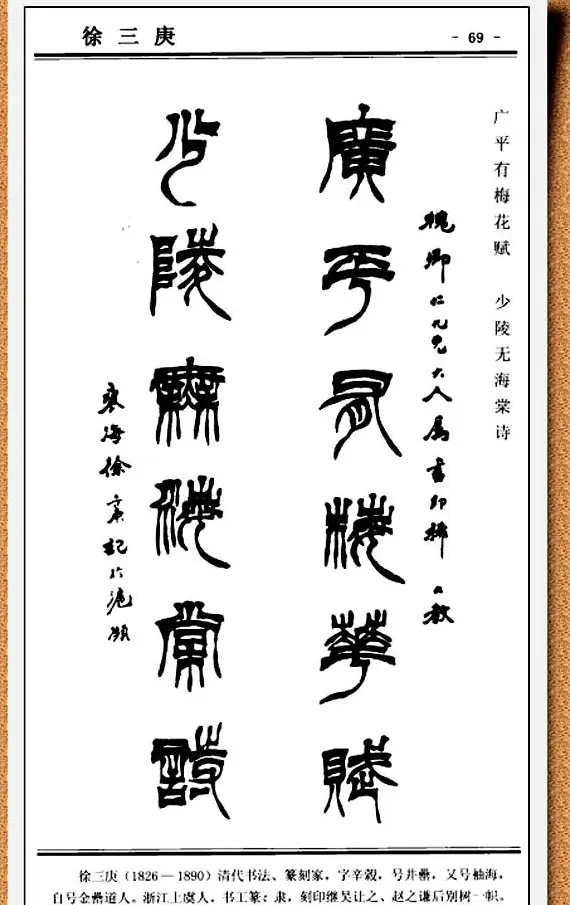 徐三庚
- 69 -
广平有梅花赋 少陵无海棠诗
槐卿仁九兄大人属書即 教
廣平有梅華賦
少陵無海棠詩
褎海徐三庚記於滬瀕
徐三庚（1826—1890）清代书法、篆刻家，字辛穀，号井罍，又号袖海，
自号金罍道人。浙江上虞人，书工篆、隶，刻印继吴让之、赵之谦后别树一帜。